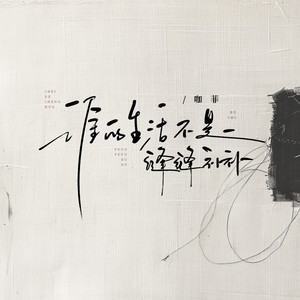 / 咖 菲
谁的生活不是
缝缝补补